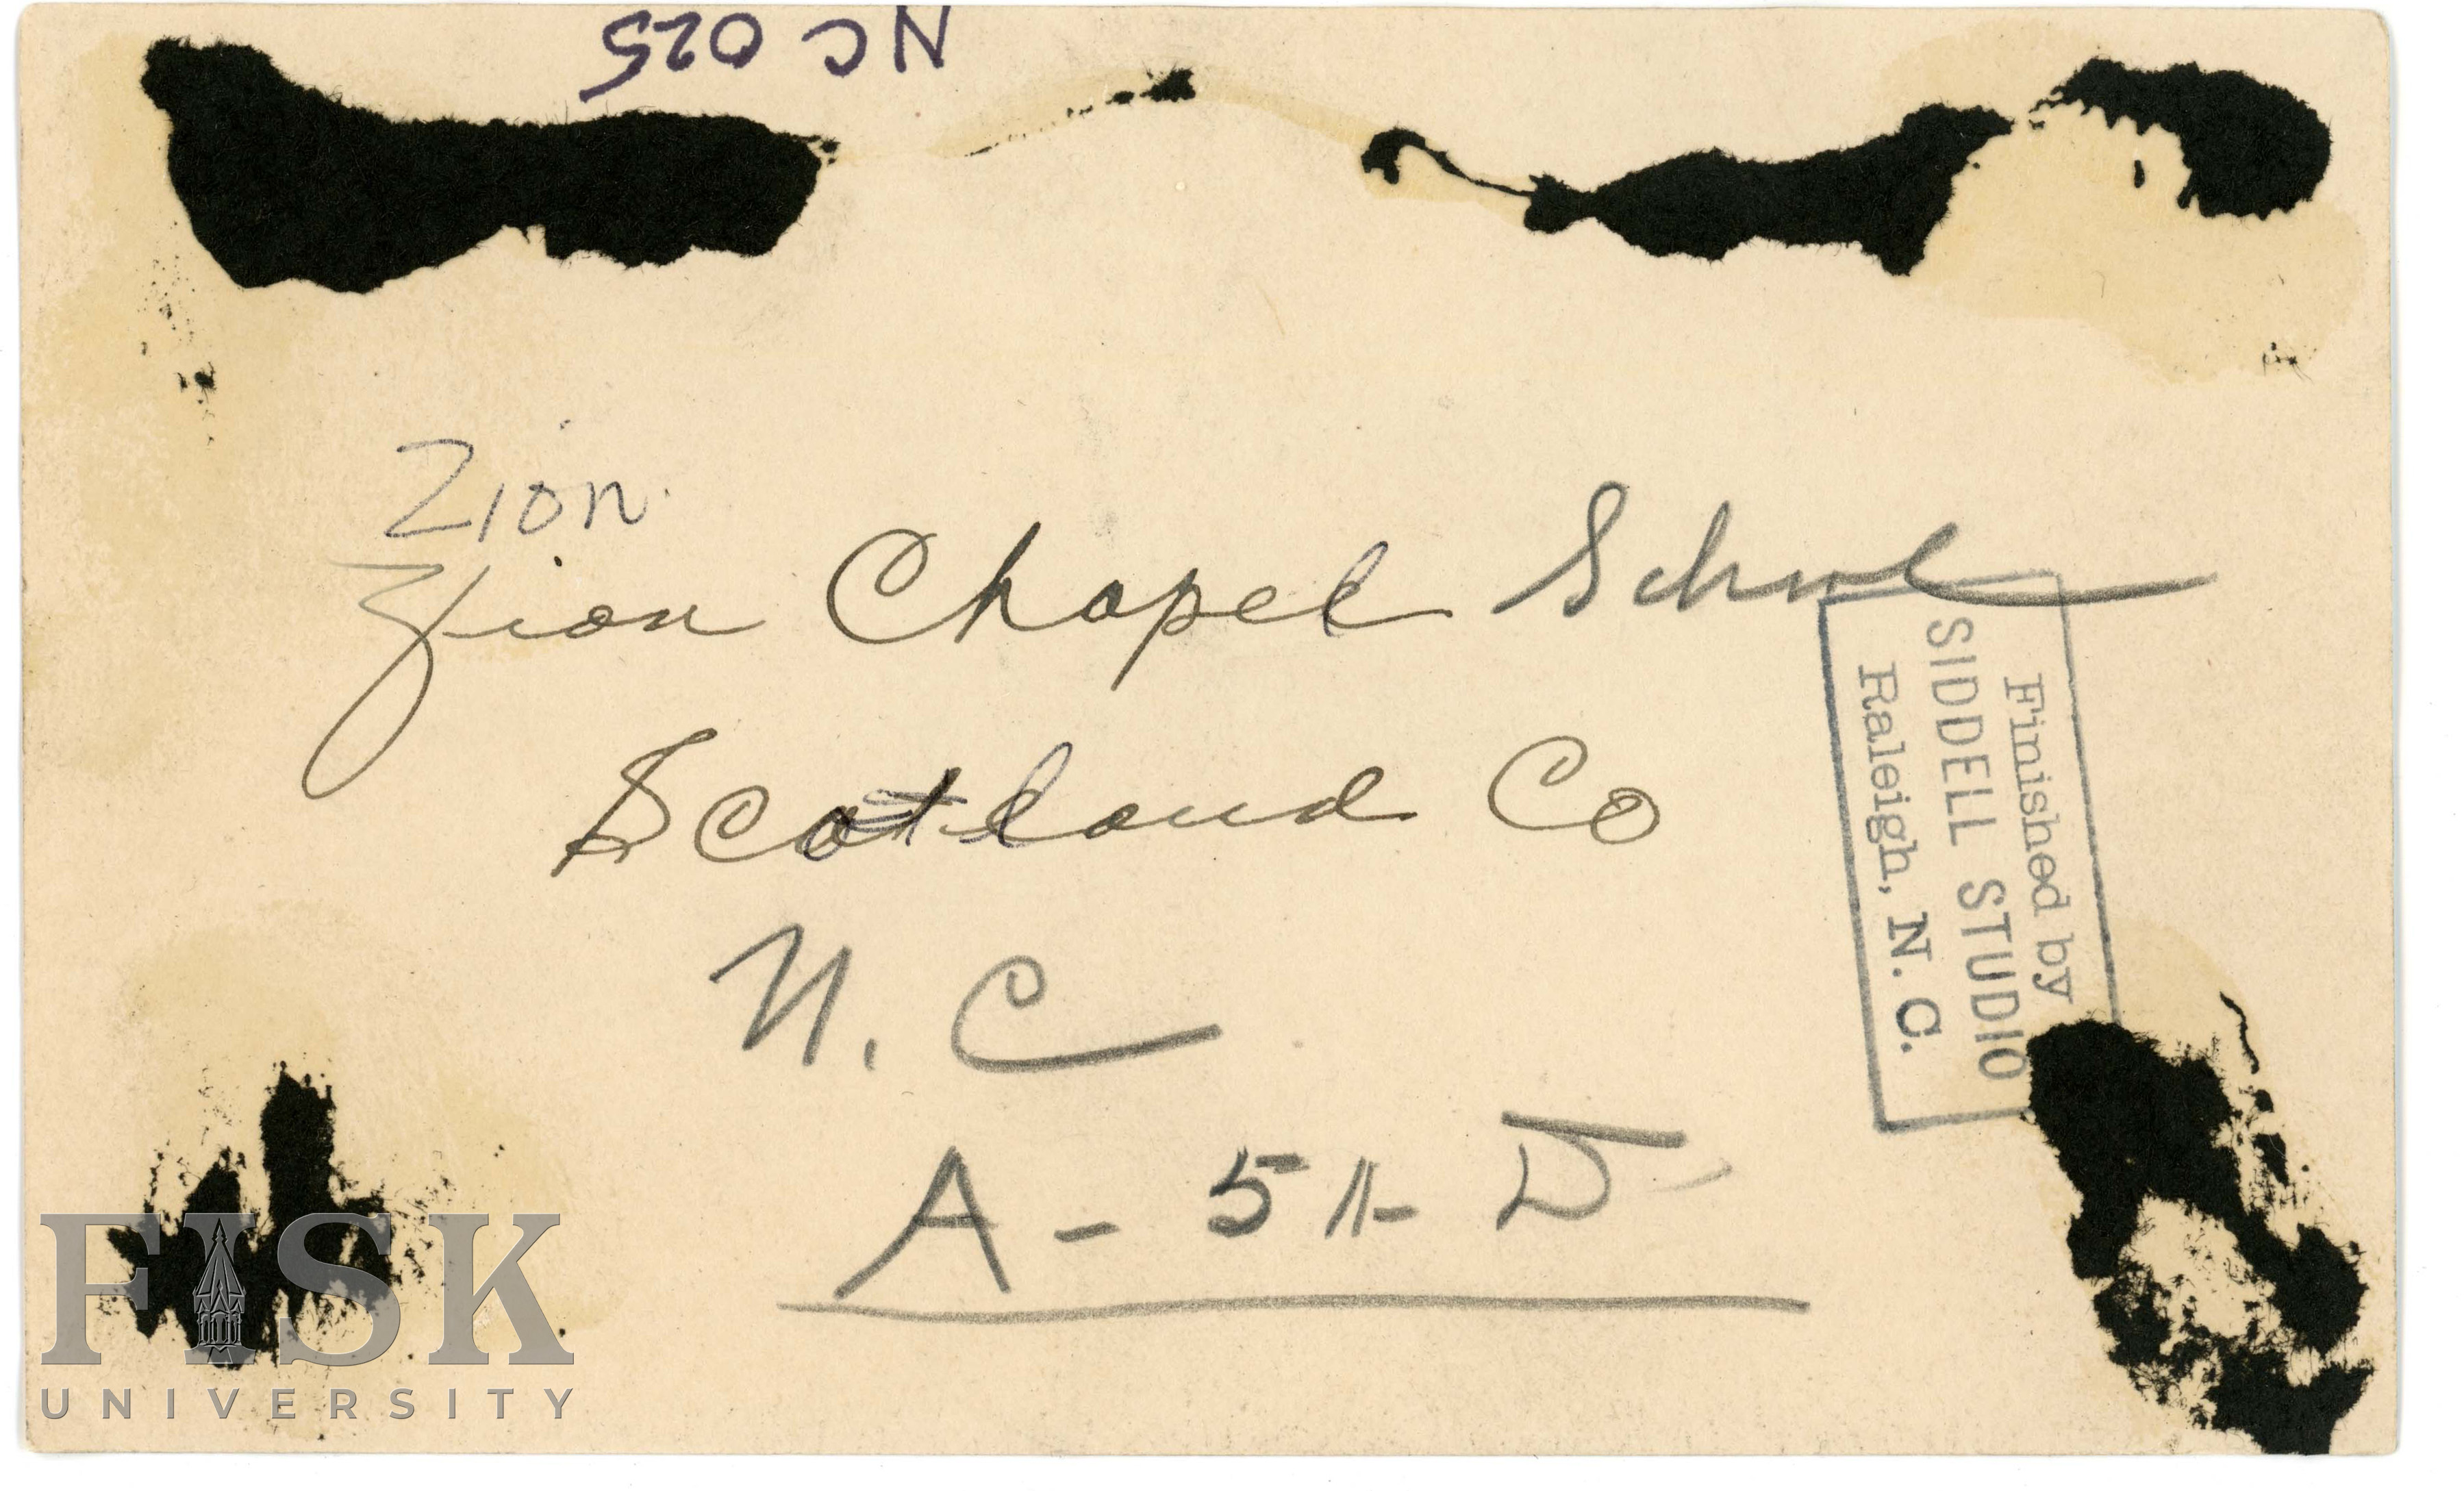 NC 025
Zion
Zion Chapel School
Scotland Co
N. C
A - 5 11- D-
Finished by
SIDDELL STUDIO
Raleigh, N. C.
FISK
UNIVERSITY